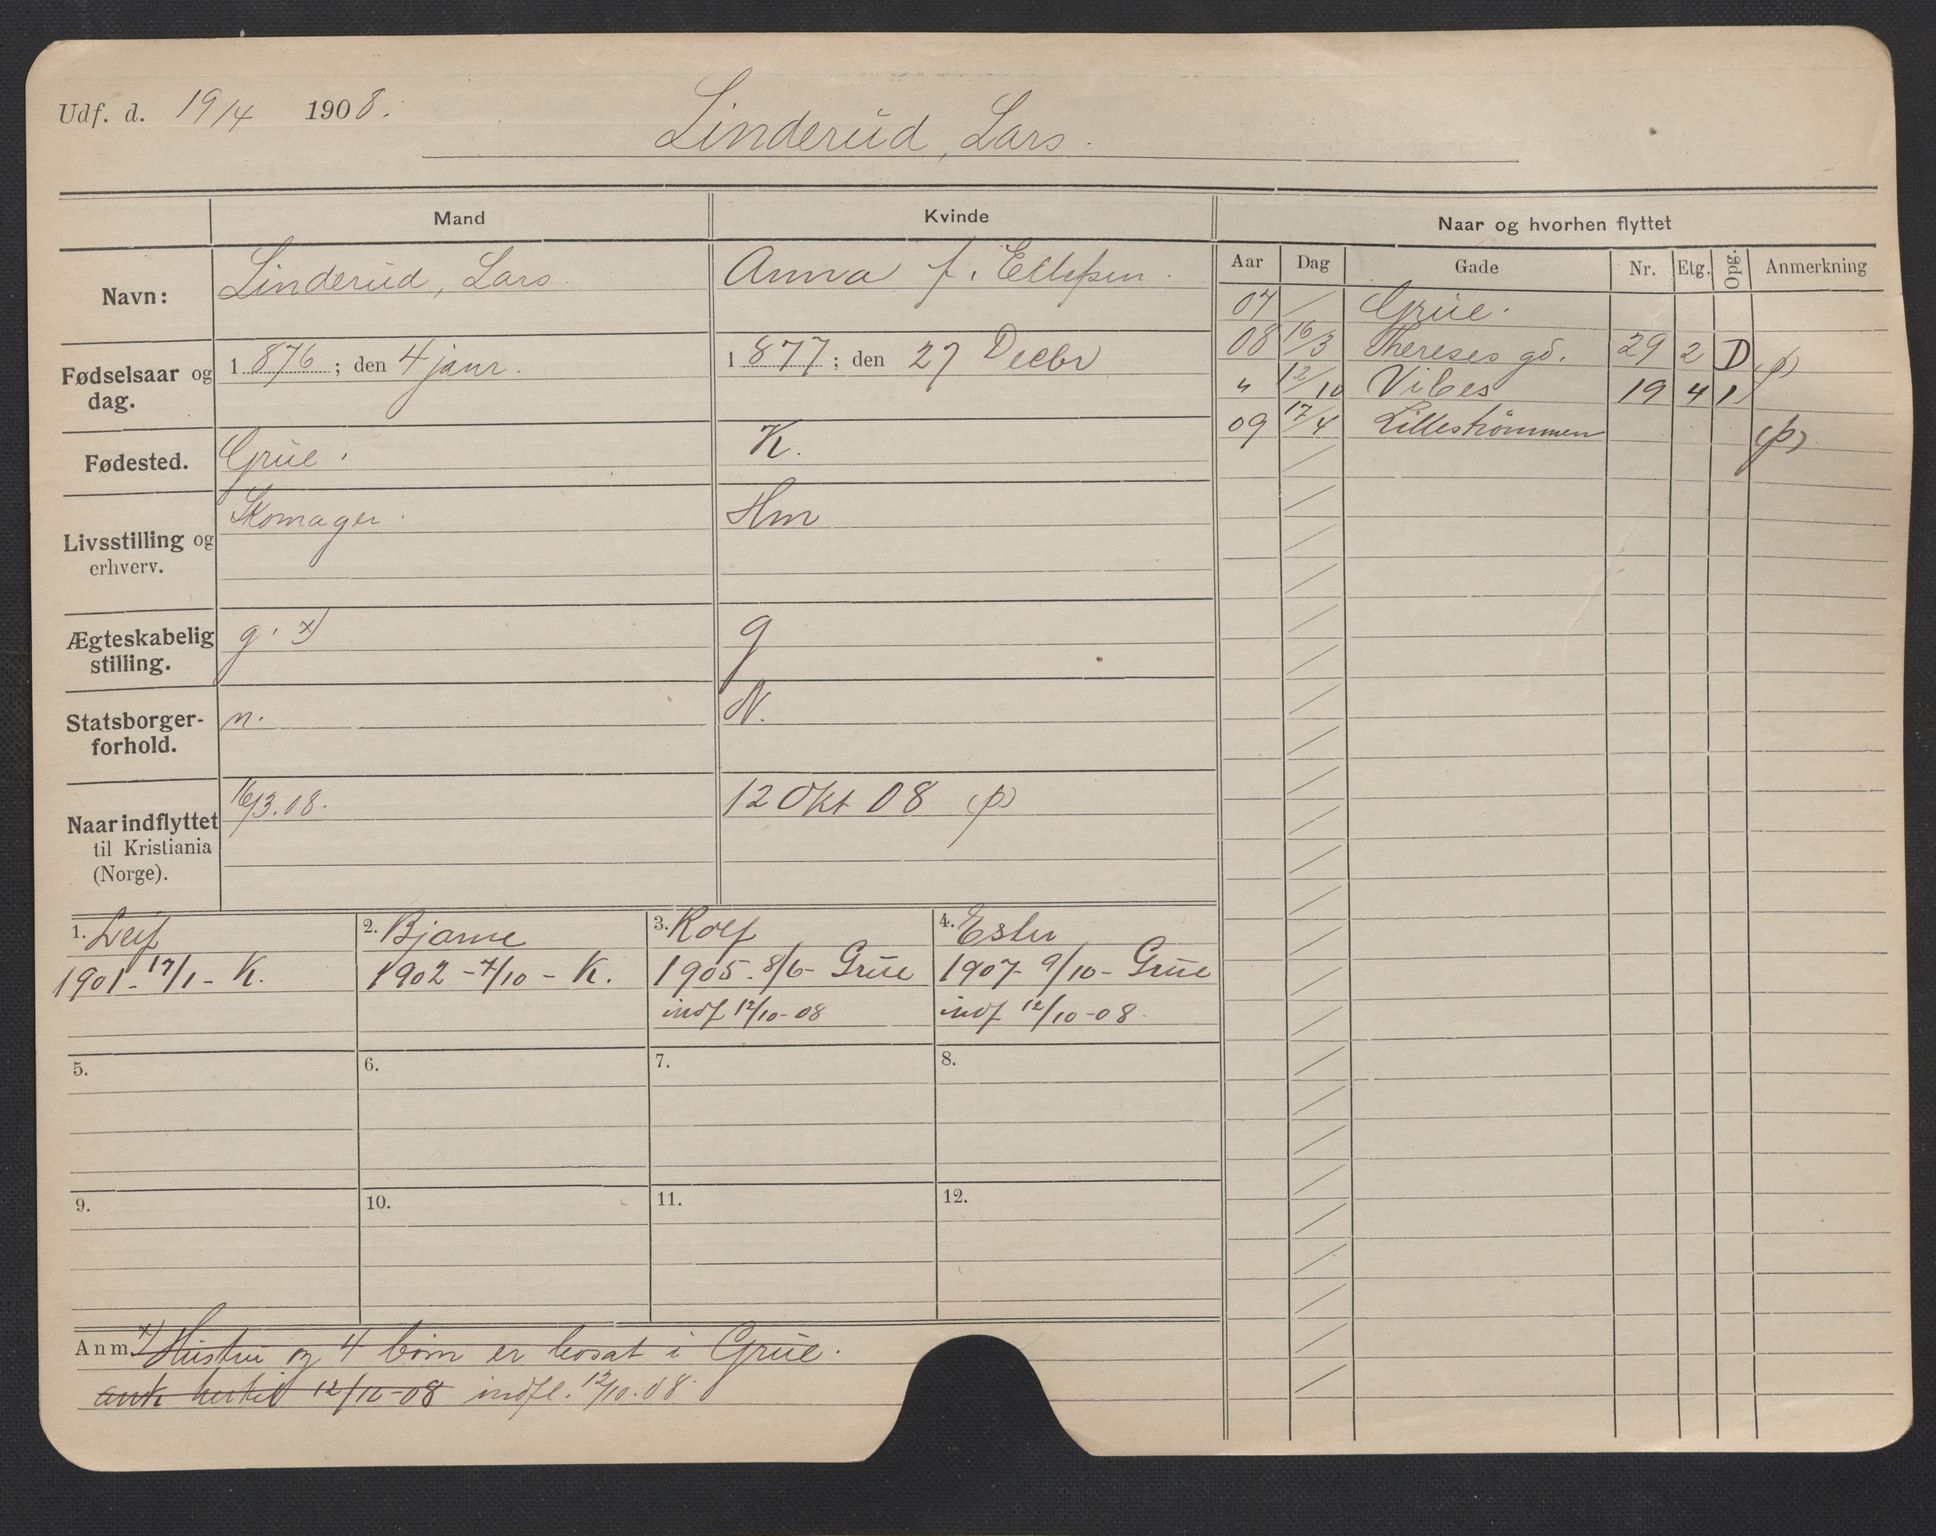 Udf. d. 19/4 1908.
Linderud, Lars.
Mand Kvinde Naar og hvorhen flyttet
Aar Dag Gade Nr. Etg. Opg. Anmerkning
Navn: Linderud, Lars. Anna f. Ellefsen.
Fødselsaar og dag. 1876; den 4 janr. 1877; den 27 Decbr
Fødested. Grue. K.
Livsstilling og erhverv. Skomager. Hm
Ægteskabelig stilling. g. x) g
Statsborgerforhold. n. N.
Naar indflyttet til Kristiania (Norge). 16/3.08. 12 Okt 08 (p)
07 / Grue.
08 16/3 Thereses gd. 29 2 D
" 12/10 Vibes 19 4 1 (p)
09 17/4 Lillestrømmen (p)
1. Leif
1901 - 17/1 - K.
2. Bjarne
1902 - 7/10 - K.
3. Rolf
1905 - 8/6 - Grue
indf 12/10-08
4. Ester
1907 - 9/10 - Grue
indf 12/10-08.
5. 6. 7. 8.
9. 10. 11. 12.
Anm. x) Hustru og 4 børn er bosat i Grue.
ank hertil 12/10-08 indfl. 12/10.08.